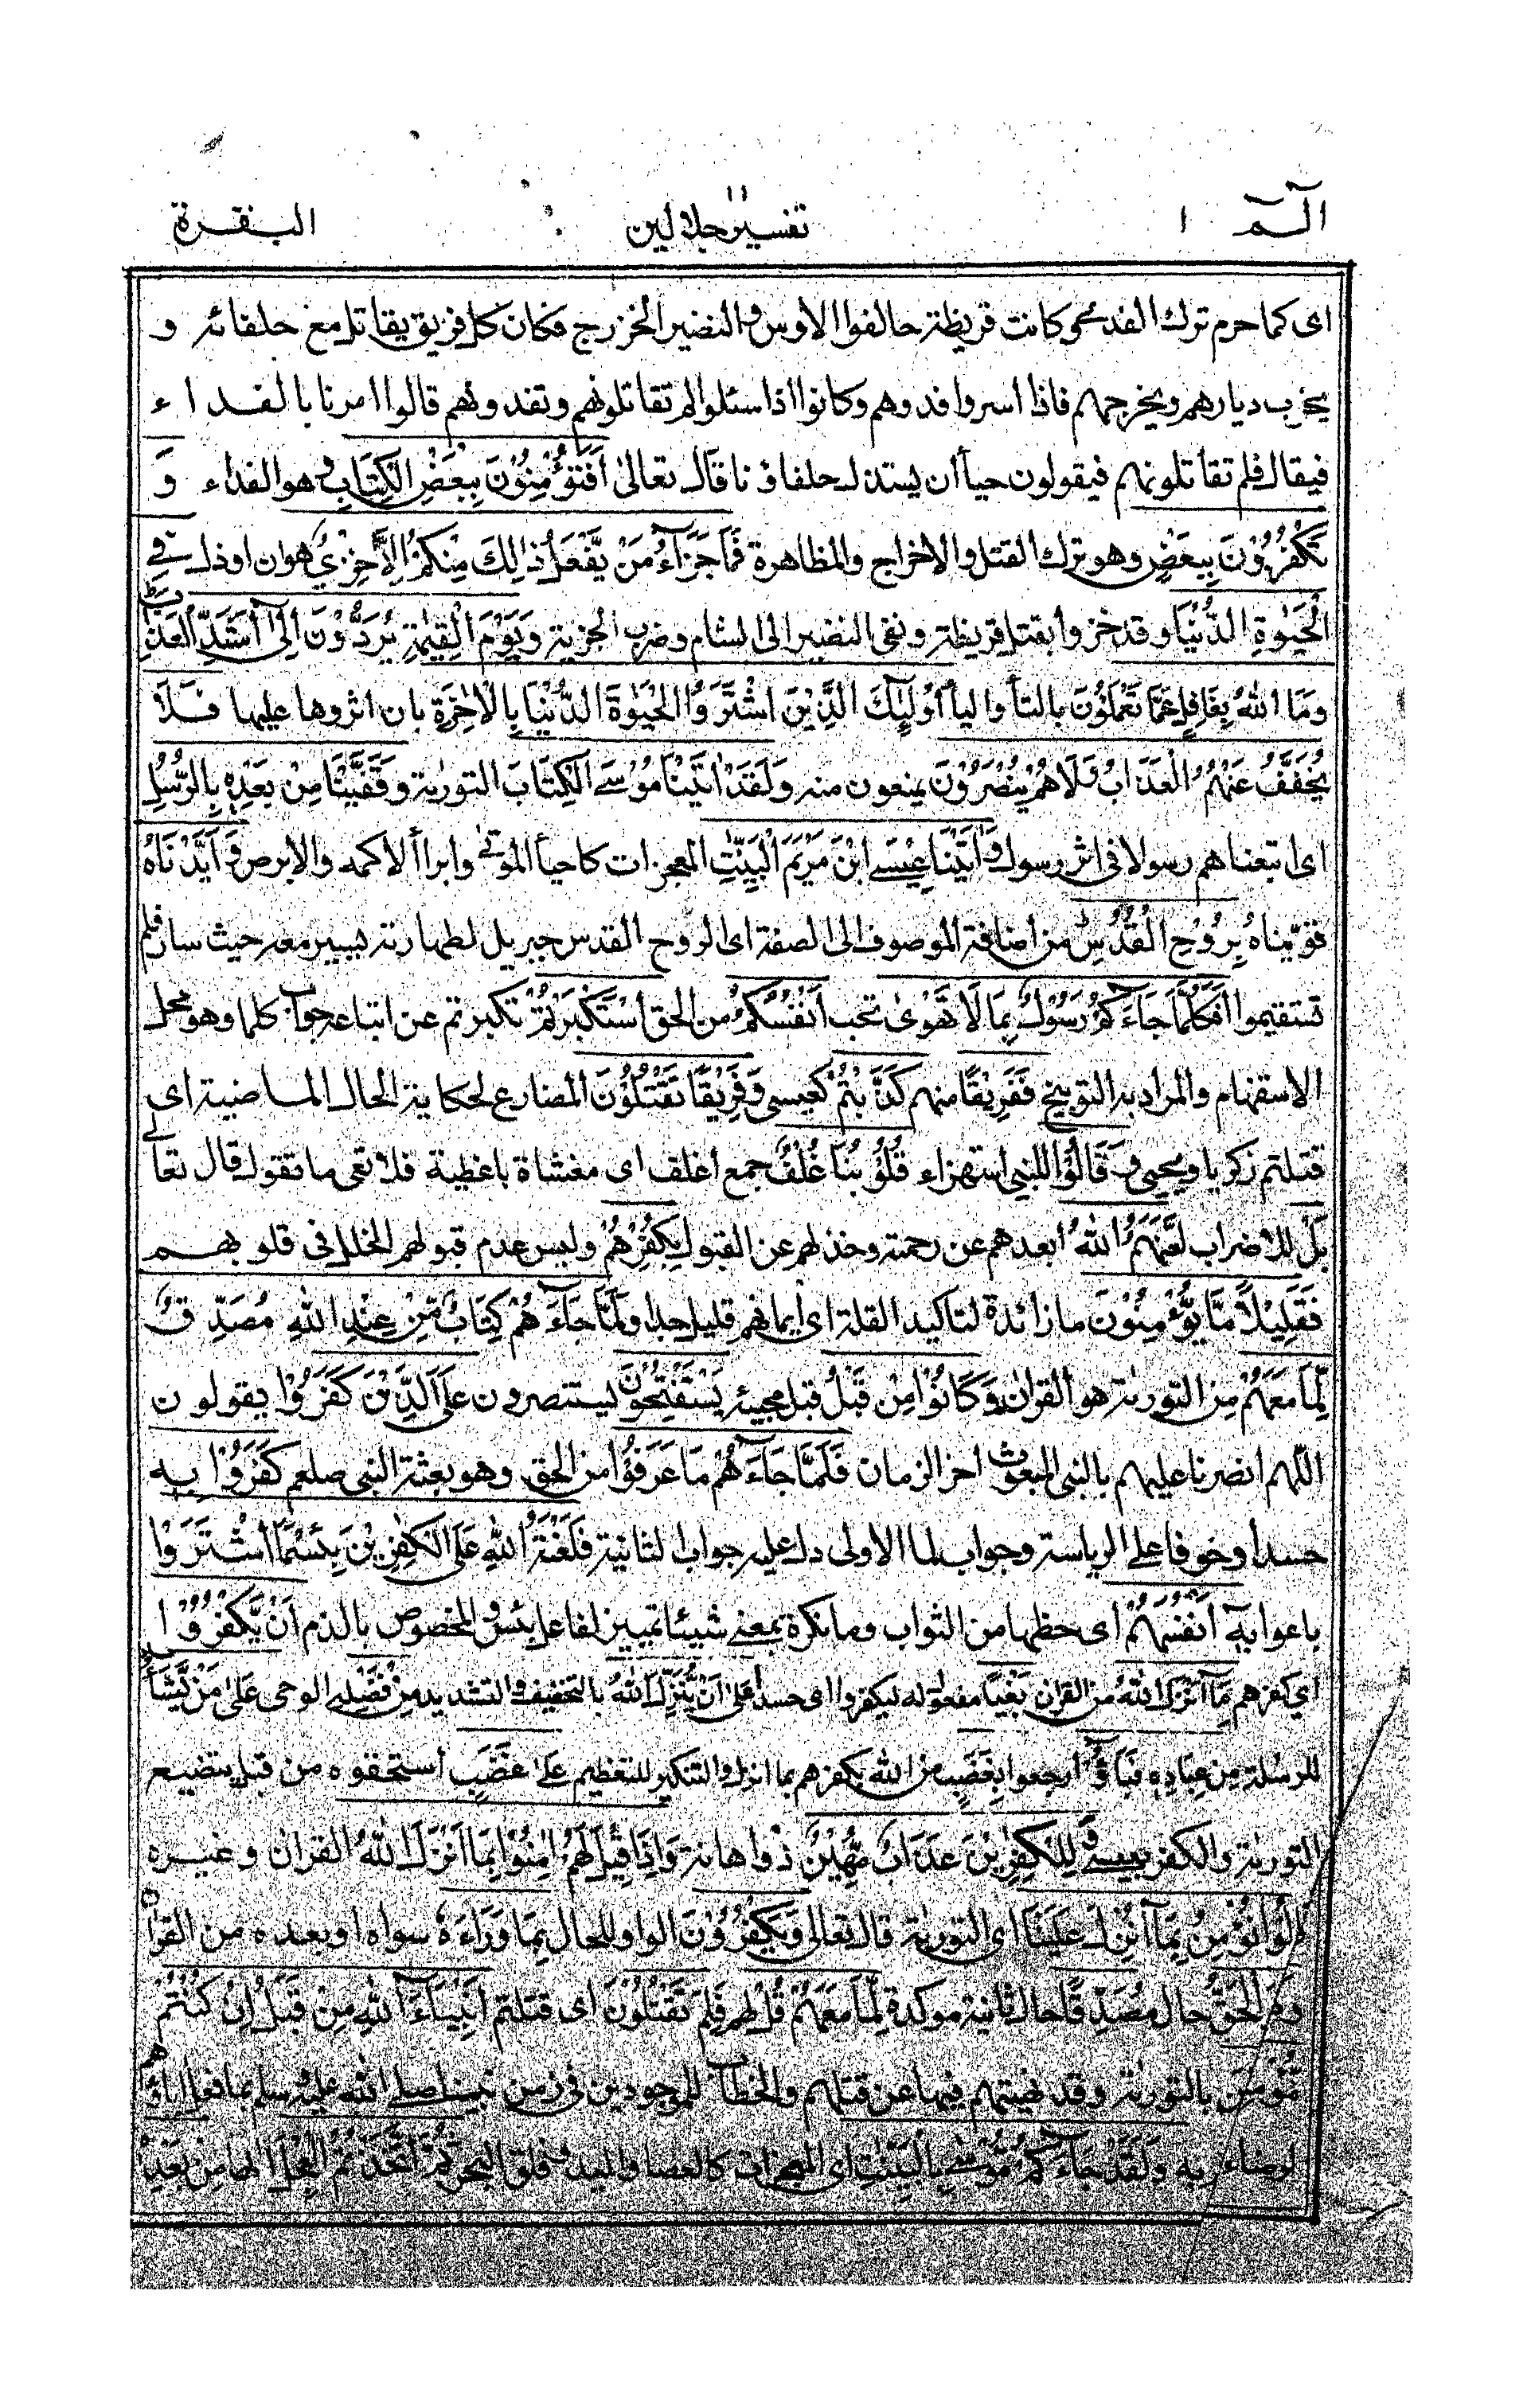 الٓمّٓ ١
تفسير جلالين
١١
البقرة
اى كما حرم ترك الفدى وكانت قريظة حالفوا الاوس والنضير الخزرج فكان كل فريق يقاتل مع حلفائه و
يخرب ديارهم ويخرجهم فاذا اسروا فدوهم وكانوا اذا سئلوا لم تقاتلونهم وتفدونهم قالوا امرنا بالفداء
فيقال فلم تقاتلونهم فيقولون حياأ ان يستذل حلفاؤنا قال تعالىٰ اَفَتُؤْمِنُوْنَ بِبَعْضِ الْكِتَابِ وهو الفداء وَ
تَكْفُرُوْنَ بِبَعْضٍ وهو ترك القتل والاخراج والمظاهرة فَمَا جَزَآءُ مَنْ يَّفْعَلُ ذٰلِكَ مِنْكُمْ اِلَّا خِزْىٌ هوان وذل فِى
الْحَيٰوةِ الدُّنْيَا وقد خزوا بقتل قريظة ونفى النضير الى الشام وضرب الجزية وَيَوْمَ الْقِيٰمَةِ يُرَدُّوْنَ اِلٰى اَشَدِّ الْعَذَابِ
وَمَا اللهُ بِغَافِلٍ عَمَّا تَعْمَلُوْنَ بالتاأ والياأ اُولٰٓئِكَ الَّذِيْنَ اشْتَرَوُا الْحَيٰوةَ الدُّنْيَا بِالْاٰخِرَةِ بان اثروها عليها فَلَا
يُخَفَّفُ عَنْهُمُ الْعَذَابُ وَلَا هُمْ يُنْصَرُوْنَ يمنعون منه وَلَقَدْ اٰتَيْنَا مُوْسَى الْكِتَابَ التورٰية وَقَفَّيْنَا مِنْ بَعْدِهٖ بِالرُّسُلِ
اى اتبعناهم رسولا فى اثر رسول وَاٰتَيْنَا عِيْسَى ابْنَ مَرْيَمَ الْبَيِّنٰتِ المعجزات كاحياأ الموتىٰ وابراأ الاكمه والابرص وَاَيَّدْنَاهُ
قويناه بِرُوْحِ الْقُدُسِ من اضافة الموصوف الى الصفة اى الروح القدس جبريل لطهارته يسير معه حيث سار فلم
تستقيموا اَفَكُلَّمَا جَآءَكُمْ رَسُوْلٌ بِمَا لَا تَهْوٰى تحب اَنْفُسُكُمُ من الحق اسْتَكْبَرْتُمْ تكبرتم عن اتباعه جواب كلما وهو محل
الاستفهام والمراد به التوبيخ فَفَرِيْقًا منهم كَذَّبْتُمْ كعيسى وَفَرِيْقًا تَقْتُلُوْنَ المضارع لحكاية الحال الماضية اى
قتلتم زكريا ويحيى وَقَالُوْا للنبى استهزاء قُلُوْبُنَا غُلْفٌ جمع اغلف اى مغشاة باغطية فلا تعى ما تقول قال تعالى
بَلْ للاضراب لَعَنَهُمُ اللهُ ابعدهم عن رحمته وخذلهم عن القبول بِكُفْرِهِمْ وليس عدم قبولهم لخلل فى قلوبهم
فَقَلِيْلًا مَّا يُؤْمِنُوْنَ ما زائدة لتاكيد القلة اى ايمانهم قليل جدا وَلَمَّا جَآءَهُمْ كِتَابٌ مِّنْ عِنْدِ اللهِ مُصَدِّقٌ
لِّمَا مَعَهُمْ مِن التورٰية هو القراٰن وَكَانُوْا مِنْ قَبْلُ قبل مجيئه يَسْتَفْتِحُوْنَ يستنصرون عَلَى الَّذِيْنَ كَفَرُوْا يقولون
اللّٰهم انصرنا عليهم بالنبى المبعوث اخر الزمان فَلَمَّا جَآءَهُمْ مَا عَرَفُوْا من الحق وهو بعثة النبى صلعم كَفَرُوْا بِهٖ
حسدا وخوفا على الرياسة وجواب لما الاولى دل عليه جواب الثانية فَلَعْنَةُ اللهِ عَلَى الْكٰفِرِيْنَ بِئْسَمَا اشْتَرَوْا
باعوا بِهٖٓ اَنْفُسَهُمْ اى حظها من الثواب وما نكرة بمعنى شيئا تمييز لفاعل بئس والمخصوص بالذم اَنْ يَّكْفُرُوْا
اى كفرهم بِمَآ اَنْزَلَ اللهُ من القراٰن بَغْيًا مفعول له ليكفروا اى حسدا على اَنْ يُّنَزِّلَ اللهُ بالتخفيف والتشديد مِنْ فَضْلِهٖ الوحى عَلٰى مَنْ يَّشَآءُ
للرسالة مِنْ عِبَادِهٖ فَبَآءُوْ ارجعوا بِغَضَبٍ من الله بكفرهم بما انزل والتنكير للتعظيم عَلٰى غَضَبٍ استحقوه من قبل بتضييع
التورٰية والكفر بعيسى وَلِلْكٰفِرِيْنَ عَذَابٌ مُّهِيْنٌ ذو اهانة وَاِذَا قِيْلَ لَهُمْ اٰمِنُوْا بِمَا اَنْزَلَ اللهُ القراٰن وغيره
قَالُوْا نُؤْمِنُ بِمَآ اُنْزِلَ عَلَيْنَا اى التورٰية قال تعالى وَيَكْفُرُوْنَ الواو للحال بِمَا وَرَآءَهٗ سواه او بعده من القراٰن
وَهُوَ الْحَقُّ حال مُصَدِّقًا حال ثانية موكدة لِّمَا مَعَهُمْ قُلْ لهم فَلِمَ تَقْتُلُوْنَ اى قتلتم اَنْبِيَآءَ اللهِ مِنْ قَبْلُ اِنْ كُنْتُمْ
مُّؤْمِنِيْنَ بالتورٰية وقد نهيتم فيها عن قتلهم والخطاب للموجودين فى زمن نبينا صلى الله عليه وسلم بما فعل اٰباؤهم
لرضاهم به وَلَقَدْ جَآءَكُمْ مُّوْسٰى بِالْبَيِّنٰتِ اى المعجزات كالعصا واليد وفلق البحر ثُمَّ اتَّخَذْتُمُ الْعِجْلَ الها مِنْ بَعْدِهٖ